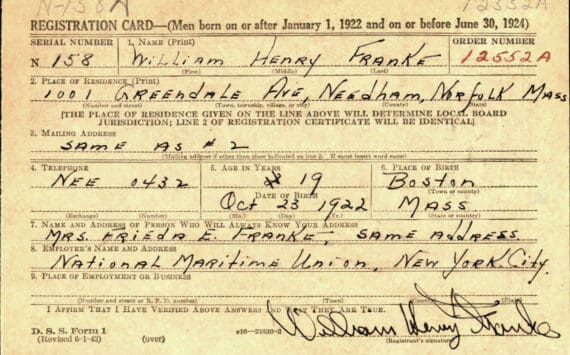 N-158A 12552A
REGISTRATION CARD—(Men born on or after January 1, 1922 and on or before June 30, 1924)
SERIAL NUMBER 1. NAME (Print) ORDER NUMBER
N 158 WILLIAM HENRY FRANKE 12552A
(First) (Middle) (Last)
2. PLACE OF RESIDENCE (Print)
1001 GREENDALE AVE, NEEDHAM, NORFOLK MASS
(Number and street) (Town, township, village, or city) (County) (State)
[THE PLACE OF RESIDENCE GIVEN ON THE LINE ABOVE WILL DETERMINE LOCAL BOARD
JURISDICTION; LINE 2 OF REGISTRATION CERTIFICATE WILL BE IDENTICAL]
3. MAILING ADDRESS
SAME AS #2
(Mailing address if other than place indicated on line 2. If same insert word same)
4. TELEPHONE 5. AGE IN YEARS 6. PLACE OF BIRTH
NEE 0432 19 BOSTON
DATE OF BIRTH (Town or county)
OCT 23 1922 MASS
(Exchange) (Number) (Mo.) (Day) (Yr.) (State or country)
7. NAME AND ADDRESS OF PERSON WHO WILL ALWAYS KNOW YOUR ADDRESS
MRS. FRIEDA E. FRANKE, SAME ADDRESS
8. EMPLOYER'S NAME AND ADDRESS
NATIONAL MARITIME UNION, NEW YORK CITY.
9. PLACE OF EMPLOYMENT OR BUSINESS
(Number and street or R. F. D. number) (Town) (County) (State)
I AFFIRM THAT I HAVE VERIFIED ABOVE ANSWERS AND THAT THEY ARE TRUE.
D. S. S. Form 1 William Henry Franke
(Revised 6-1-42) (over) c16—21630-3 (Registrant's signature)